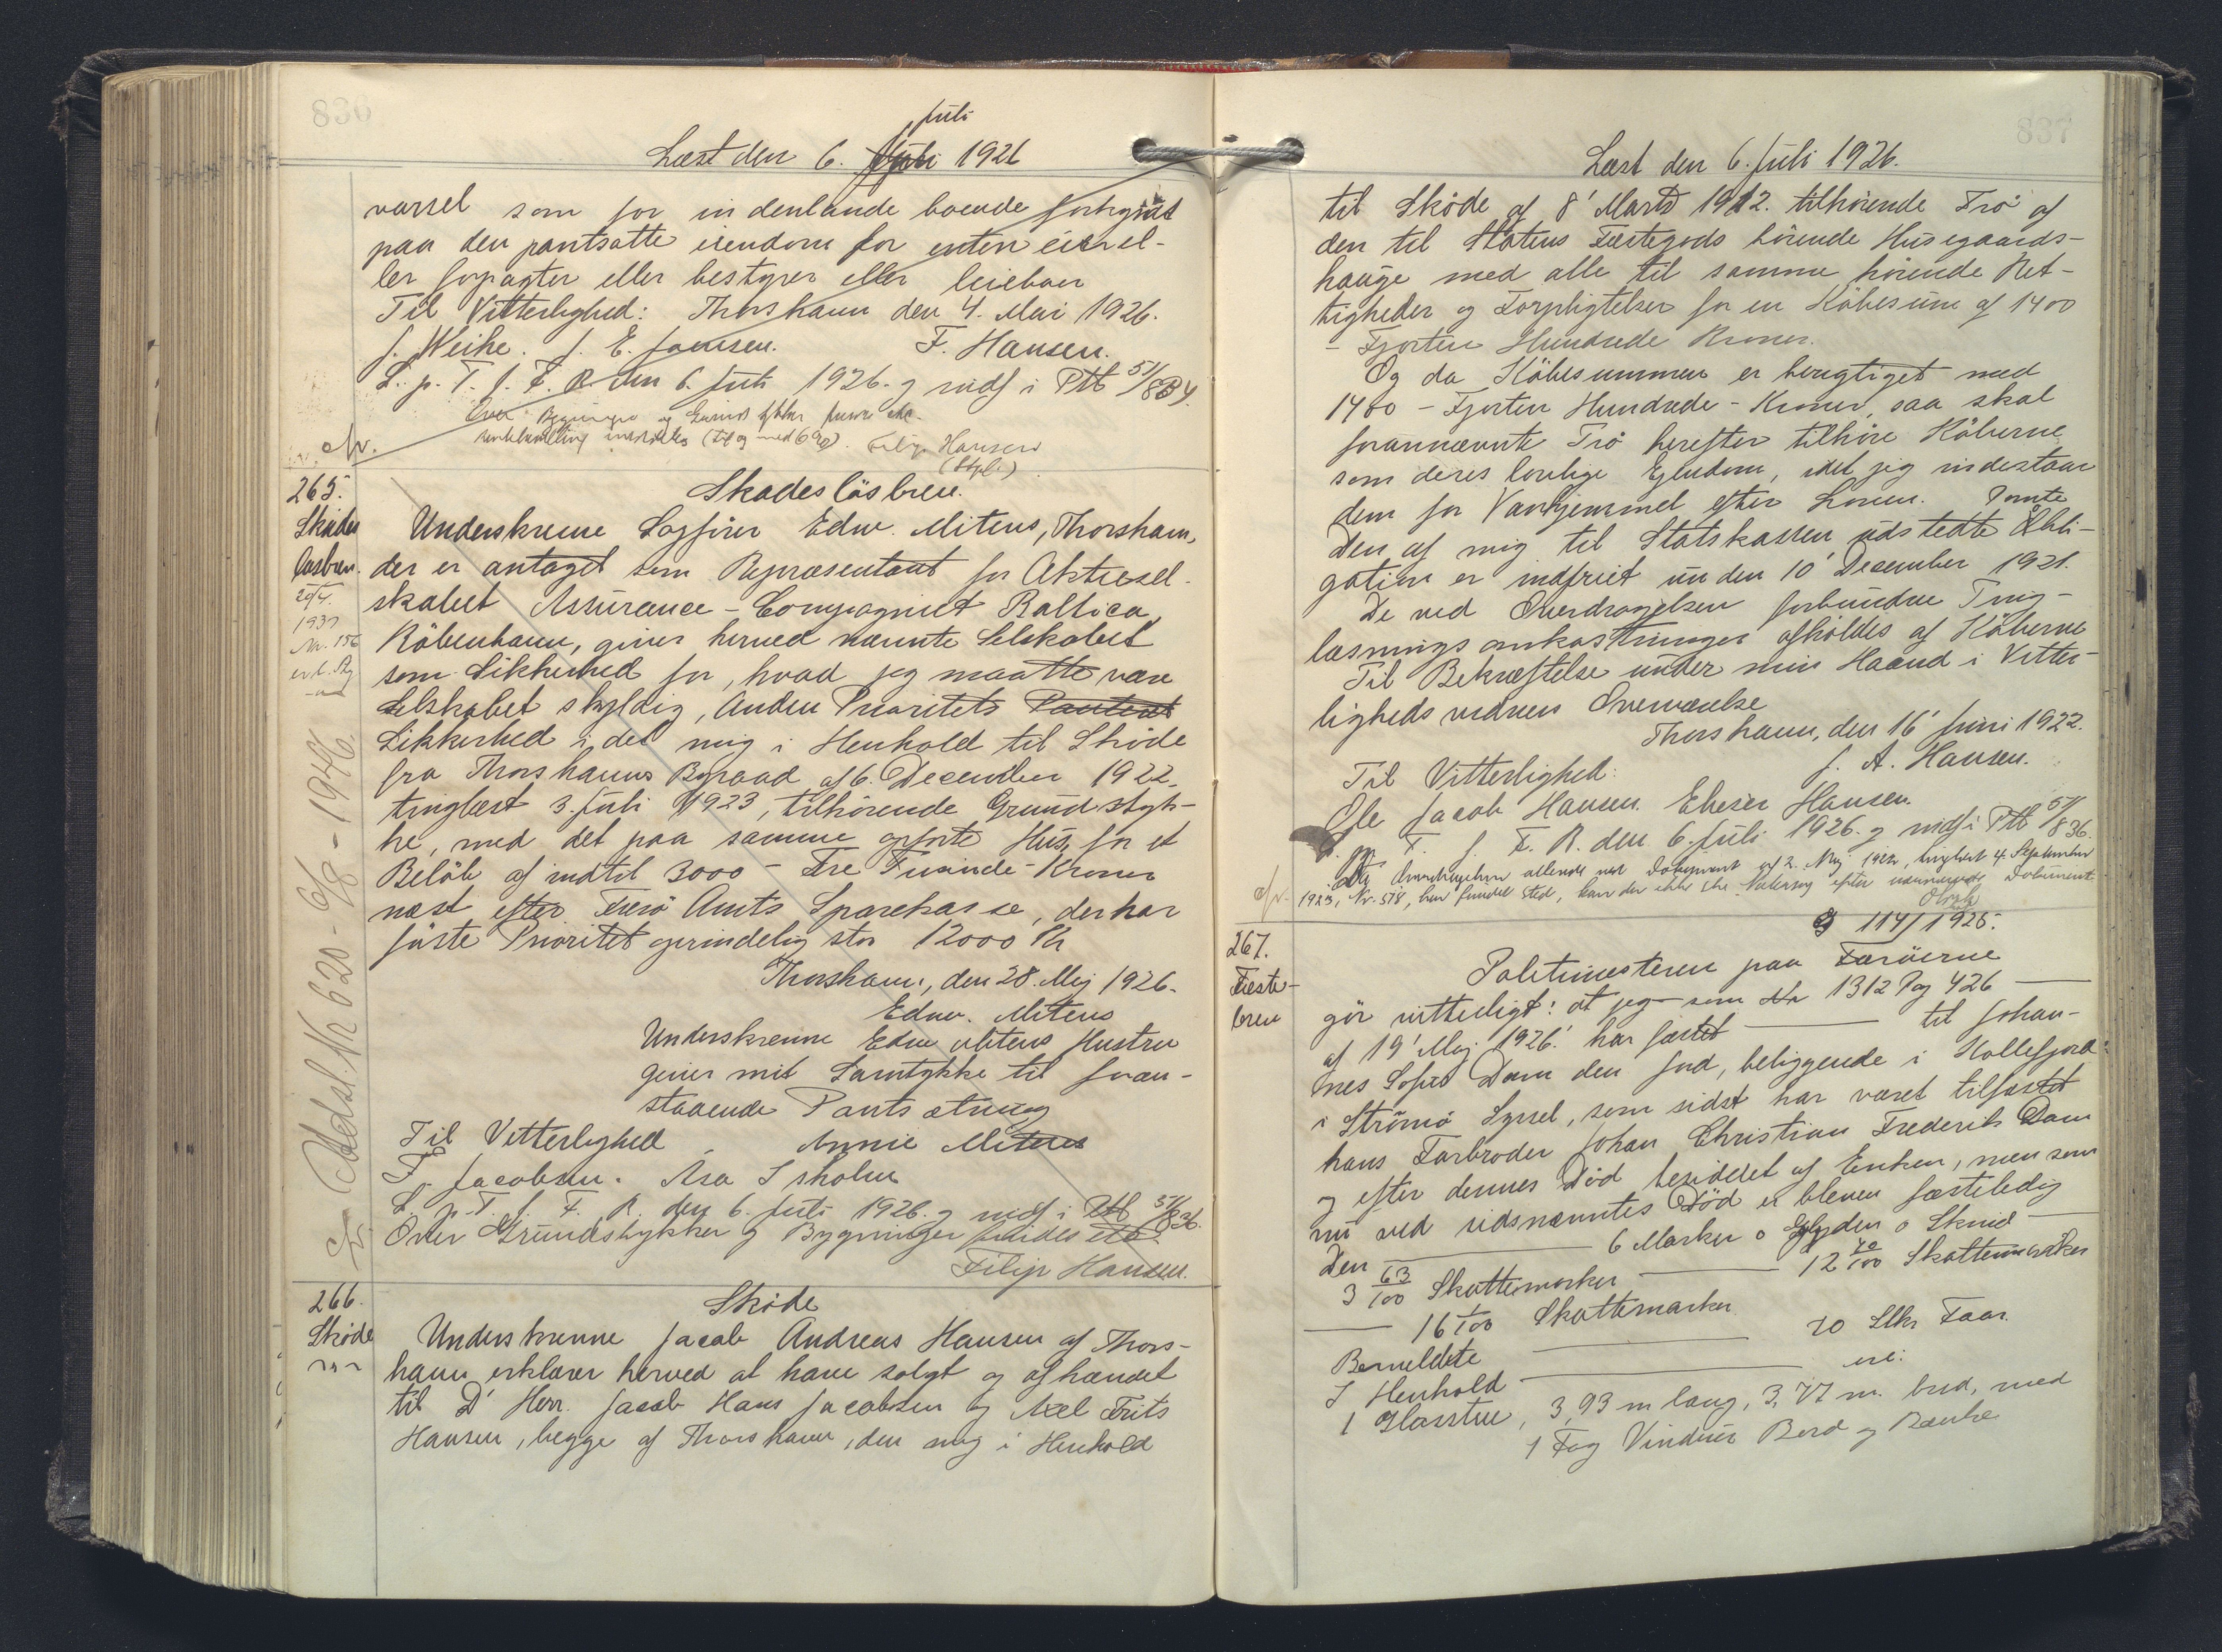 836
Juli
Læst den 6. Juli 1926
varsel som for in denlands boende
paa den pantsatte eiendom for enten eier el-
ler forpagter eller bestyrer eller leieboer
Til Vitterlighed: Thorshavn den 4. Mai 1926.
J. Weihe. J. E. Joensen. F. Hansen.
L. p. T. f. F. R. den 6. Juli 1926. g indf i Ptb 51/834.
(til og med 690). Filip Hansen
(Stpl.)
265. Skadeslösbrev.
Skades Underskrevne Sagförer Edw. Mitens, Thorshavn,
lösbrev. der er antaget som Repræsentant for Aktiesel-
20/4. skabet Assurance-Compagniet Baltica,
1937 Köbenhavn, giver herved nævnte Selskabet
Nr. 156 som Sikkerhed for, hvad jeg maatte være
Selskabet skyldig, Anden Prioritets Panteret
Sikkerhed i det mig i Henhold til Sköde
fra Thorshavns Byraad af 6. December 1922,
tinglæst 3. Juli 1923, tilhörende Grundstyk-
ke, med det paa samme opförte Hus, for et
Belöb af indtil 3000 - Tre Tusinde - Kroner
næst efter Færö Amts Sparekasse, der har
förste Prioritet oprindelig stor 12000 Kr
Thorshavn, den 28. Maj 1926.
Edw. Mitens
Underskrevne Edw Mitens Hustru
giver mit Samtykke til foran-
staaende Pantsætning
Til Vitterlighed Annie Mitens
F. Jacobsen. Åsa Isholm
L. p. T. f. F. R. den 6. Juli 1926. g indf i Ptb 51/836.
Over Grundstykker og Bygninger
Filip Hansen.
Udsl. Nr 620 - 6/8 - 1946.
266. Sköde
Sköde Underskrevne Jacob Andreas Hansen af Thors-
havn erklærer herved at have solgt og afhændet
til D' Herr. Jacob Hans Jacobsen og Axel Frits
Hansen, begge af Thorshavn, den mig i Henhold
837
Læst den 6. Juli 1926.
til Sköde af 8' Marts 1912. tilhörende Trö af
den til Statens Fæstegods hörende Husegaards-
hauge med alle til samme hörende Ret-
tigheder og Forpligtelser for en Köbesum af 1400
- Fjorten Hundrede Kroner.
Og da Köbesummen er berigtiget med
1400 - Fjorten Hundrede - Kroner, saa skal
forannævnte Trö herefter tilhöre Köberne
som deres lovlige Ejendom, idet jeg indestaar
dem for Vanhjemmel efter Loven.
Den af mig til Statskassen udstedte Obli-
gation er indfriet under 10' December 1921.
De ved Overdragelsen forbundne Ting-
læsningsomkostninger afholdes af Köberne
Til Bekræftelse under min Haand i Vitter-
ligheds vidners Overværelse
Thorshavn, den 16' Juni 1922.
Til Vitterlighed: J. A. Hansen.
Ole Jacob Hansen. Elieser Hansen.
L. p. T. f. F. R. den 6. Juli 1926. g indf i Ptb 51/836.
Da Overdragelsen allerede ved Dokument af 2. Maj 1922, tinglæst 4. September
1923, Nr. 518, har fundet Sted, kan der ikke ske Notering efter nærværende Dokument
J 114/1925.
267. Politimesteren paa Færöerne
Fæste- gör vitterligt: at jeg som No 1312 Pag 426
brev af 19' Maj 1926. har fæstet til Johan-
nes Sofus Dam den Jord, beliggende i Kollefjord
i Strömö Syssel, som sidst har været tilfæstet
hans Farbroder Johan Christian Frederik Dam
og efter dennes Död besiddet af Enken, men som
nu ved sidsnævntes Död er bleven fæsteledig
Den 6 Marker 0 Gylden 0 Skind
3 63/100 Skattemarker 12 40/100 Skattemarker
16 1/100 Skattemarker
Bemeldte 20 Stkr Faar.
I Henhold eie:
1 Glasstue, 3,93 m lang, 3,77 m. bred, med
1 Fag Vinduer Bord og Bænke